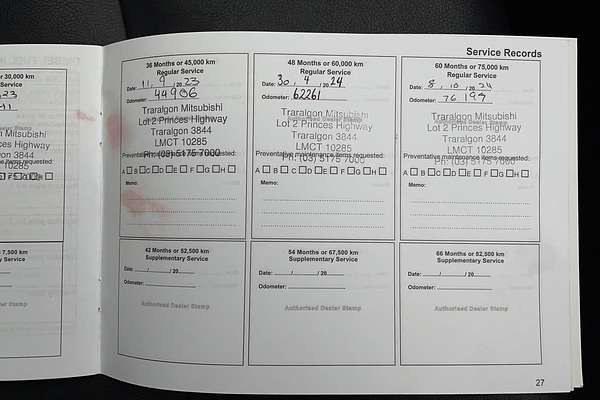 Service Records
30,000 km
Service
23
-11
Mitsubishi
ces Highway
on 3844
10285
e items requested:
7,500 km
y Service
ed Dealer Stamp
36 Months or 45,000 km
Regular Service
Date: 11, 9 / 2023
Odometer: 44986
Traralgon Mitsubishi
Lot 2 Princes Highway
Traralgon 3844
LMCT 10285
Preventative maintenance items requested:
Ph: (03) 5175 7000
A B C D E F G H
Memo:
48 Months or 60,000 km
Regular Service
Date: 30, 4 / 2024
Odometer: 62261
Traralgon Mitsubishi
Authorised Dealer Stamp
Lot 2 Princes Highway
Traralgon 3844
LMCT 10285
Preventative maintenance items requested:
Ph: (03) 5175 7000
A B C D E F G H
Memo:
60 Months or 75,000 km
Regular Service
Date: 8, 10 / 2024
Odometer: 76197
Traralgon Mitsubishi
Lot 2 Princes Highway
Traralgon 3844
LMCT 10285
Preventative maintenance items requested:
Ph: (03) 5175 7000
A B C D E F G H
Memo:
42 Months or 52,500 km
Supplementary Service
Date: / / 20
Odometer:
Authorised Dealer Stamp
54 Months or 67,500 km
Supplementary Service
Date: / / 20
Odometer:
Authorised Dealer Stamp
66 Months or 82,500 km
Supplementary Service
Date: / / 20
Odometer:
Authorised Dealer Stamp
27